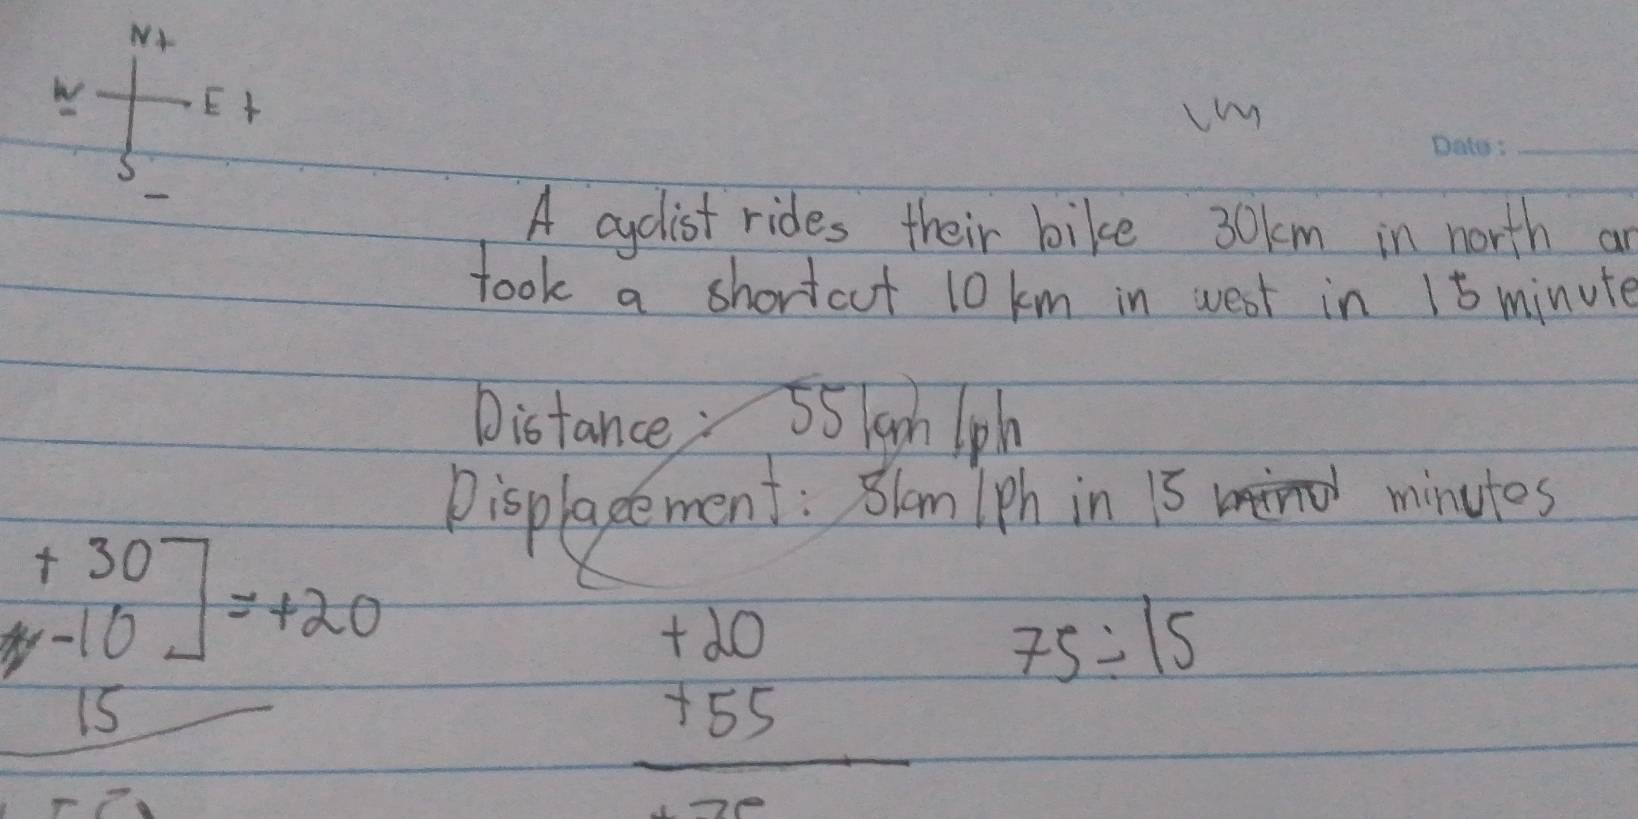 N+
W - E +
S
-
Date:
A cyclist rides their bike 30km in north
took a shortcut 10 km in west in 15 minute
Distance: 55km/ph
Displacement: 5km/ph in 15 minutes
+ 30
-10 = +20
15
+20
+55
75÷15